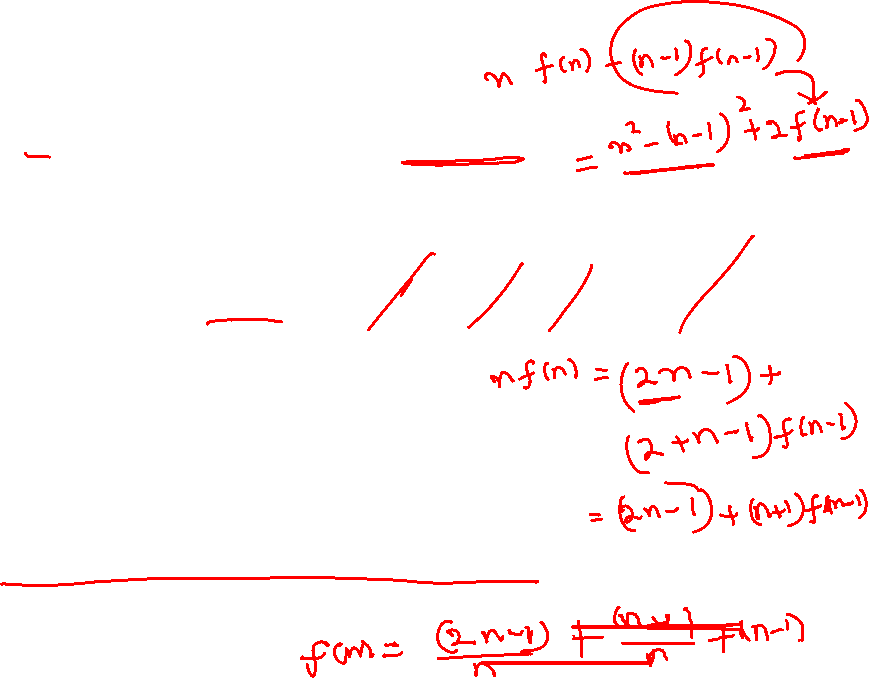 n f(n) - (n-1)f(n-1)
= n² - (n-1)² + 2f(n-1)
nf(n) = (2n-1) +
(2+n-1)f(n-1)
= (2n-1) + (n+1)f(n-1)
f(n) = (2n-1)/n + (n+1)/n f(n-1)